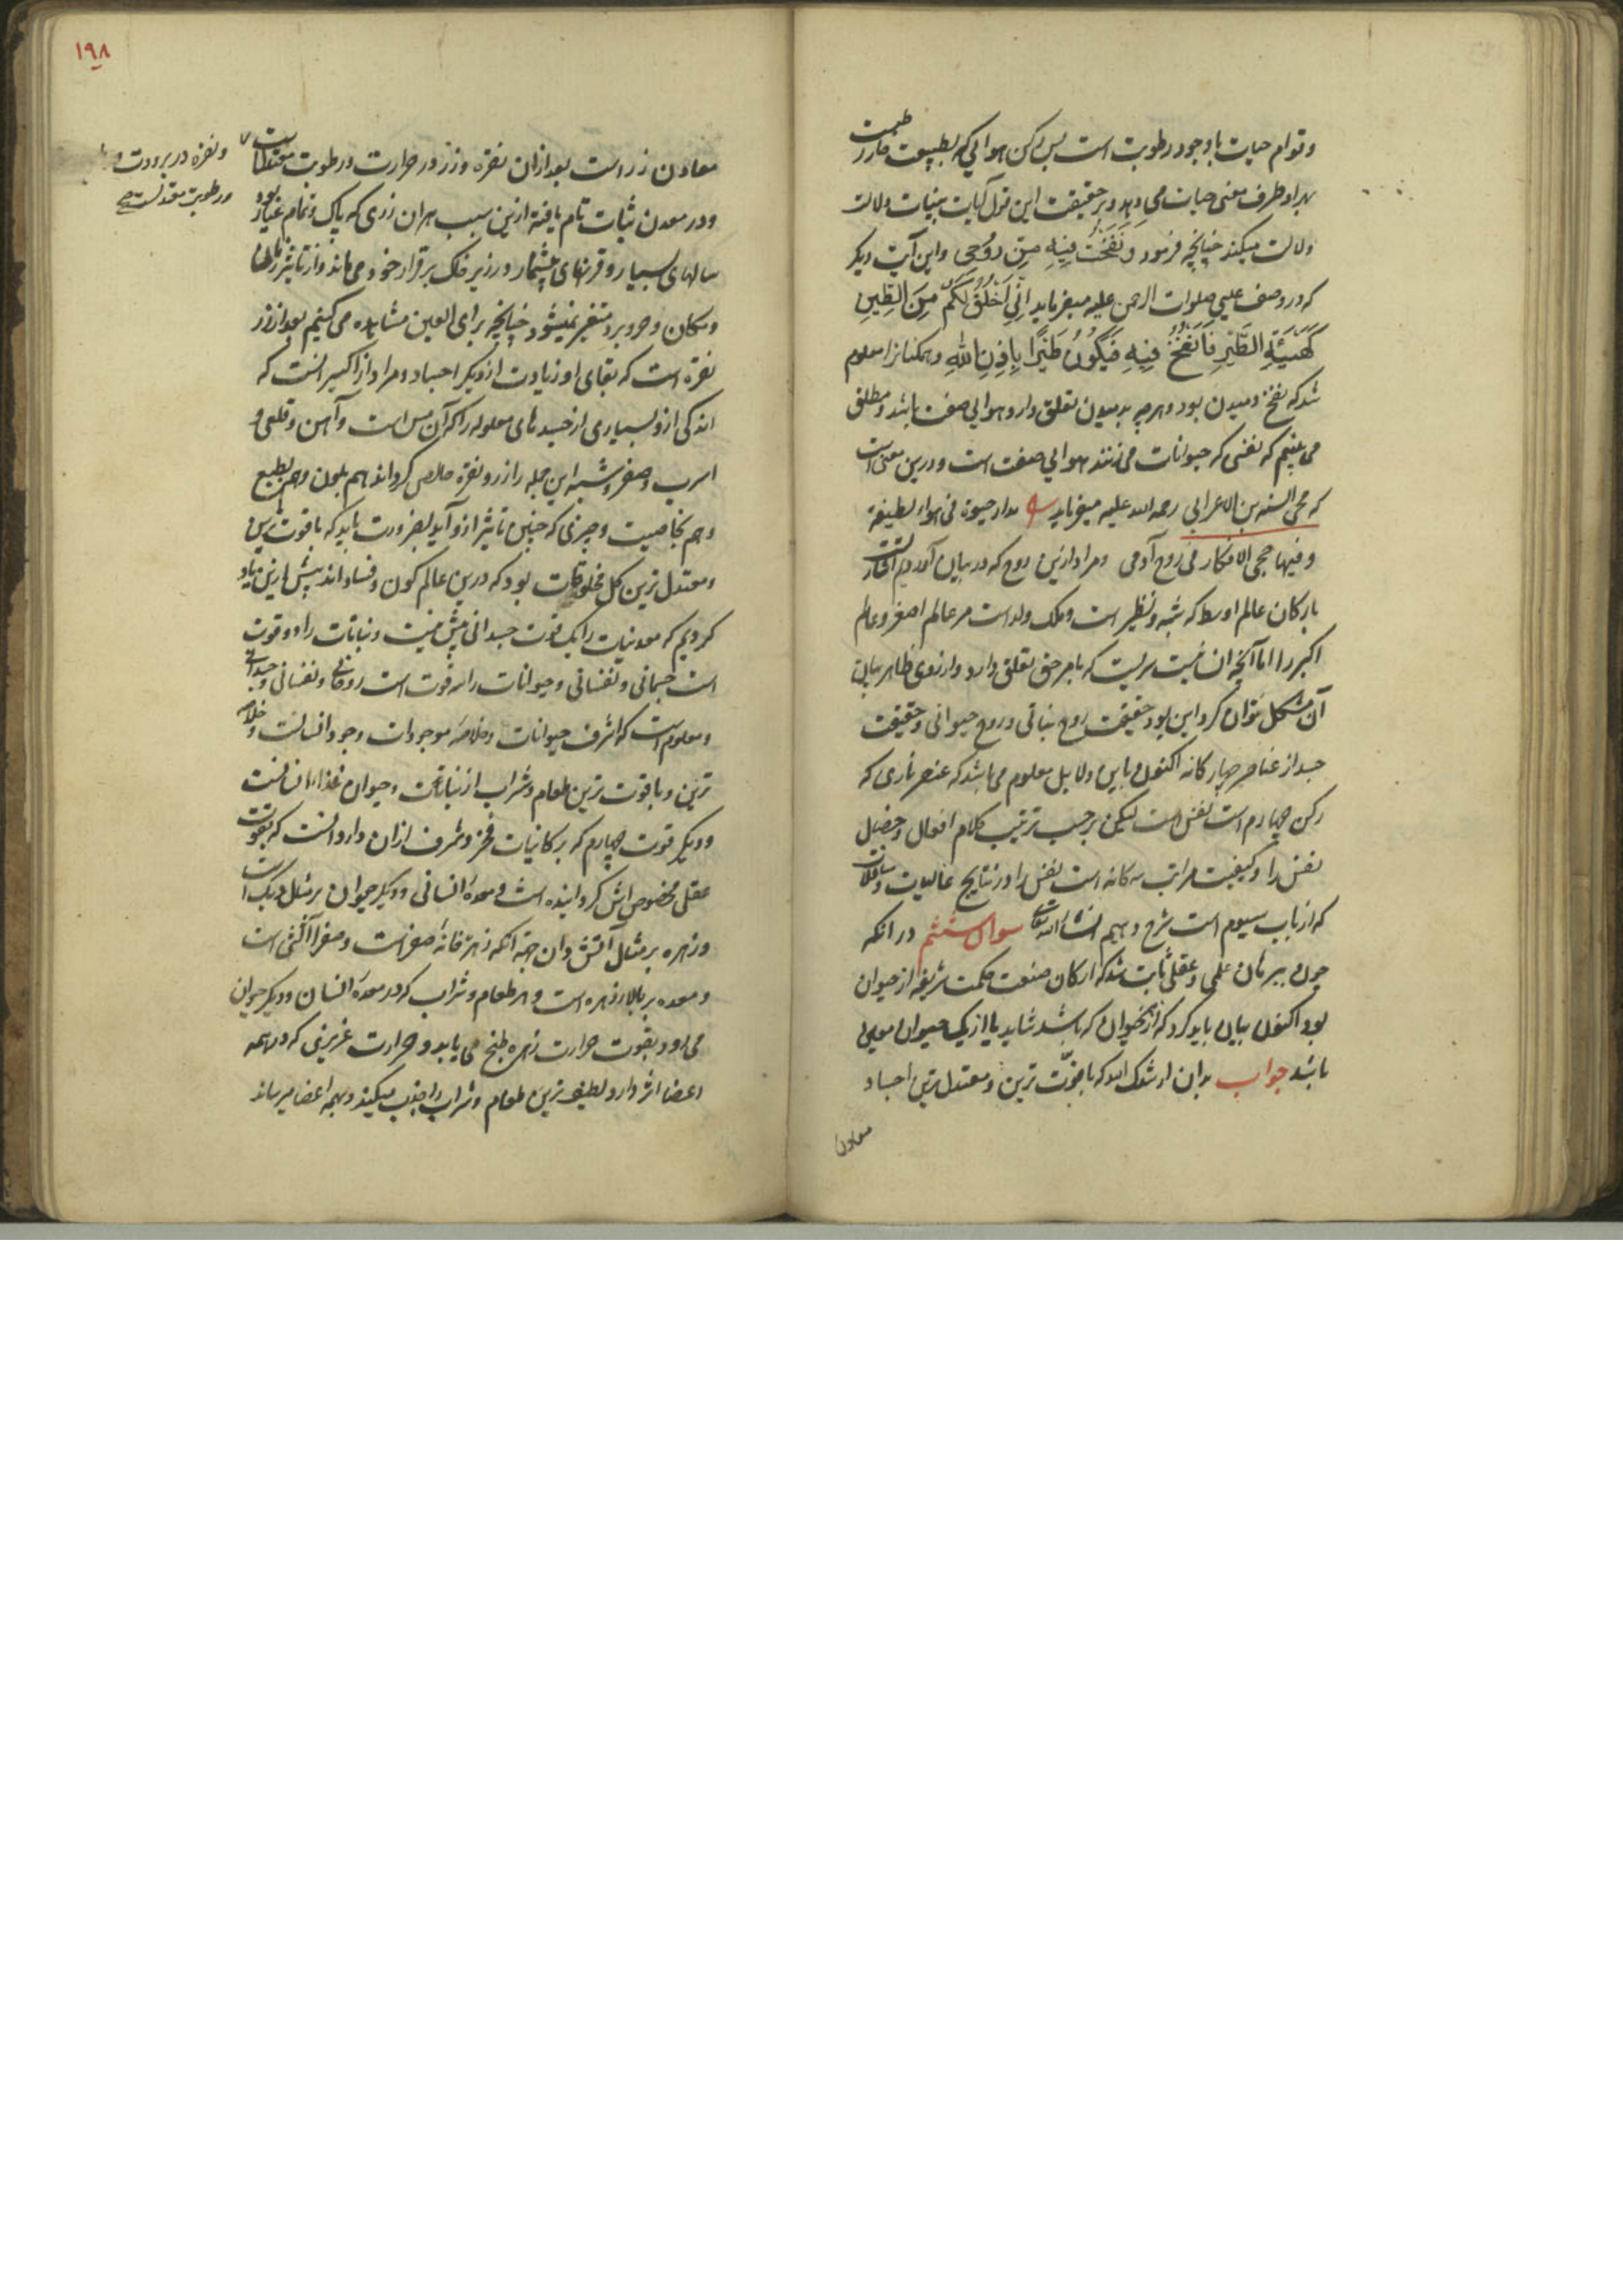 وقوام حیات باوجود رطوبت است پس رکن هوایی که بطبیعت حار رطبست
بهر دو طرف معنی حیات می دهد و بر حقیقت این قول آیات بینات دلالت
دلالت میکند چنانچه فرمود وَنَفَخْتُ فِیهِ مِنْ رُوحِی واین آیت دیگر
که در وصف عیسی صلوات الرحمن علیه میفرماید اَنِّی اَخْلُقُ لَکُمْ مِنَ الطِّینِ
کَهَیْئَةِ الطَّیْرِ فَاَنْفُخُ فِیهِ فَیَکُونُ طَیْرًا بِاِذْنِ اللهِ وهمکنانرا معلوم
شد که نفخ دمیدن بود و هرچه بدمیدن تعلق دارد هوایی صفت باشد و مطلق
می بینیم که نفسی که حیوانات می زنند هوایی صفت است و درین معنی است
که محی السنه بن الاعرابی رحمه الله علیه میفرماید مدار حیوة فی هواء لطیفة
وفیها حجی الافکار فی روح آدمی ومراد ازین روح که در بیان آوردیم
بارکان عالم اوسط که شبه ونظیر است وملک ولد است مر عالم اصغر وعالم
اکبر را اما آنچه انسانیت سریست که بامر حق تعلق دارد و از روی ظاهر بیان
آن مشکل توان کرد این بود حقیقت روح نباتی و روح حیوانی وحقیقت
جسد از عناصر چهار کانه اکنون باین دلایل معلوم می باشد که عنصر ناری که
رکن چهارم است نفس است لیکن برحسب ترتیب کلام افعال وخصایل
نفس را وکیفیت مراتب سه کانه است نفس را در نتایج عالیات وسافلات
که از باب سیوم است شرح دهیم انشاء الله تعالی سوال ششم در انکه
چون ببرهان علمی وعقلی ثابت شد که ارکان صنعت حکمت شریفه از حیوان
بود اکنون بیان باید کرد که از هر حیوان که باشد شاید یا از یک حیوان معین
باشد جواب بدان ارشدک الله که باقوت ترین ومعتدل ترین اجساد
معادن
۱۹۸
معادن زر است بعد ازان نقره وزر در حرارت ورطوبت معتدلست
ونقره در برودت و
ورطوبت معتدلست صح
ودر معدن ثبات تام یافته ازین سبب هران زری که پاک وتمام عیار بود
سالهای بسیار وقرنهای بیشمار در زیر خاک برقرار خود می ماند واز تاثیر زمان
ومکان وحر وبرد متغیر نمیشود چنانچه برای العین مشاهده می کنیم بعد از زر
نقره است که بقای او زیادت از دیکر اجساد ومراد از اکسیر انست که
اندکی از و بسیاری از جسدهای معلوله را که آن مس است وآهن وقلعی و
اسرب وصفر وشبه این جمله را زر ونقره خلاص کرداند هم بلون وهم بطبع
وهم بخاصیت وچیزی که چنین تاثیر از و آید بضرورت باید که با قوت ترین
ومعتدل ترین کل مخلوقات بود که درین عالم کون وفساد اند پیش ازین یاد
کردیم که معدنیات را یک قوت جسدانی بیش نیست ونباتات را دو قوت
است جسمانی ونفسانی وحیوانات را سه قوت است روحانی ونفسانی وجسدانی
ومعلوم است که اشرف حیوانات وخلاصه موجودات وجود انسانست وخلاصه
ترین وباقوت ترین طعام وشراب از نباتات وحیوان غذاء انسانست
ودیکر قوت چهارم که بر کانیات فخر وشرف ازان دارد انست که بقوت
عقلی مخصوص اش کردانیده است ومعدهٔ انسانی ودیکر حیوان بر مثل دیک است
وزهره بر مثال آتش وان جهة آنکه زهره خانهٔ صفراست وصفرا آتشی است
ومعده بر بالا زهره است وهر طعام وشراب که در معدهٔ انسان ودیکر حیوان
می رود بقوت حرارت زهره طبخ می یابد وحرارت غریزی که در همه
اعضا اثر دارد لطیف ترین طعام وشراب را جذب میکند وبهمه اعضا میرساند